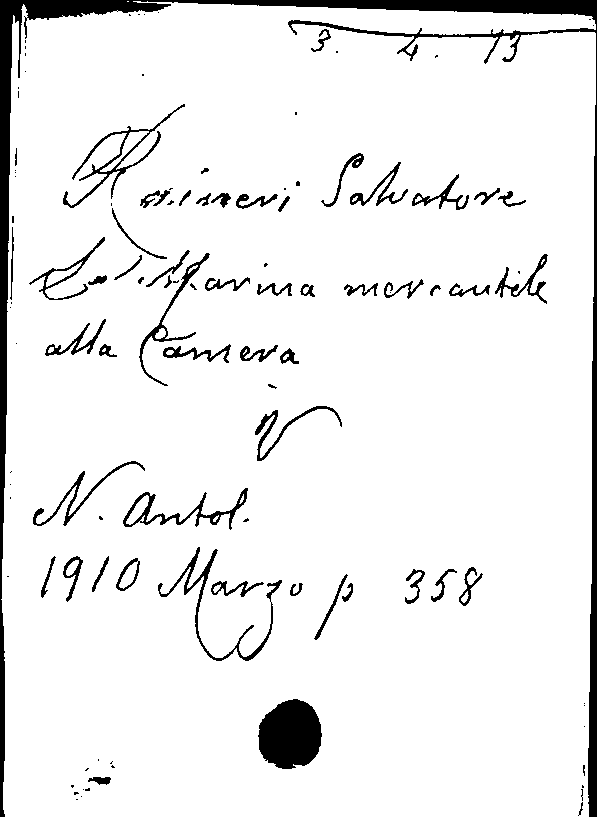 3. 4. 13
Raineri Salvatore
La Marina mercantile
alla Camera
v
N. Antol.
1910 Marzo p 358